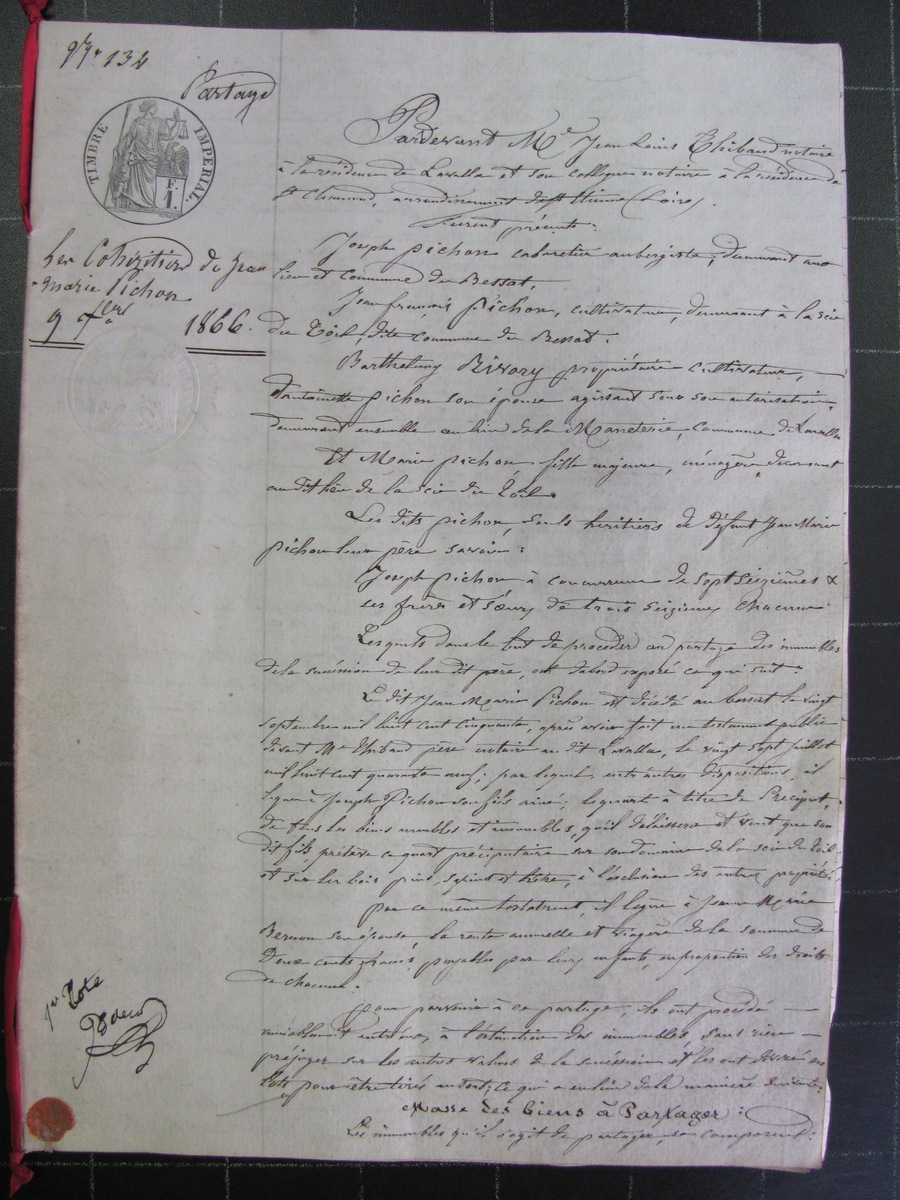 N° 134
Partage
TIMBRE IMPERIAL
F. 1.
Cohéritiers de Jean
Marie Pichon
9 1866.
Pardevant Me Jean Louis Thibaud notaire
à la résidence de Lavalla et son collègue notaire à la résidence de
St Chamond, arrondissement de St Etienne (Loire).
Furent présents :
Joseph Pichon cabaretier aubergiste, demeurant au
lieu et Commune du Bessat,
Jean François Pichon, cultivateur, demeurant à la scie
du Toil, dite commune du Bessat.
Barthelemy Rivory propriétaire cultivateur,
& antoinette Pichon son épouse agissant sous son autorisation,
demeurant ensemble au lieu de la, Commune de Lavalla
Et Marie Pichon fille majeure, ménagère, demeurant
au dit lieu de la scie du Toil.
Les dits pichon, seuls héritiers de défunt Jean Marie
pichon leur père savoir :
Joseph Pichon à concurrence de sept seizièmes &
ses frères et sœurs de trois seizièmes chacun.
Lesquels dans le but de procéder au partage des immeubles
de la succession de leur dit père, ont d'abord exposé ce qui suit :
Le dit Jean Marie Pichon est décédé au bessat le vingt
septembre mil huit cent cinquante, après avoir fait un testament public
devant Me Thibaud père notaire au dit Lavalla, le vingt sept juillet
mil huit cent quarante neuf ; par lequel, entr'autres dispositions, il
lègue à Joseph Pichon son fils ainé, le quart à titre de Préciput,
de tous les biens meubles et immeubles, qu'il délaissera et veut que son
dit fils, prélève ce quart préciputaire sur son domaine de la scie du Toil
et sur les bois pins, sapins et hêtre, à l'exclusion des autres propriétés.
par ce même testament, il lègue à Jeanne Marie
son épouse la rente annuelle et viagère de la somme de
Deux cents francs, payables par leurs enfants, en proportion des droits
de chacun.
pour parvenir à ce partage, ils ont procédé
amiablement entr'eux, à l'estimation des immeubles, sans rien
préjuger sur les autres valeurs de la succession et les ont divisé en
lots pour être tirés au sort, ce qui a eu lieu de la manière suivante :
Masse des biens à Partager :
Les immeubles qu'il s'agit de partager, se composent :
1er Rôle